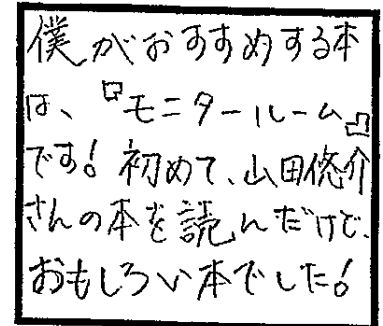 僕がおすすめする本
は、『モニタールーム』
です！初めて、山田悠介
さんの本を読んだけど、
おもしろい本でした！